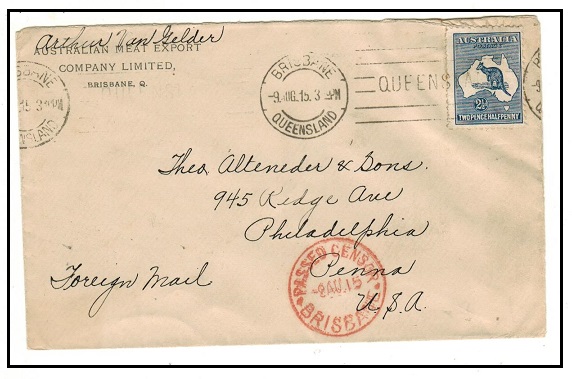 Arthur Van Gelder
AUSTRALIAN MEAT EXPORT
COMPANY LIMITED,
BRISBANE, Q.
BRISBANE
QUEENSLAND
QUEENS
AUSTRALIA
POSTAGE
2½
TWO PENCE HALFPENNY
Theo. Alteneder & Sons.
945 Ridge Ave
Philadelphia
Penna
U.S.A.
Foreign Mail
PASSED CENSOR
BRISBANE